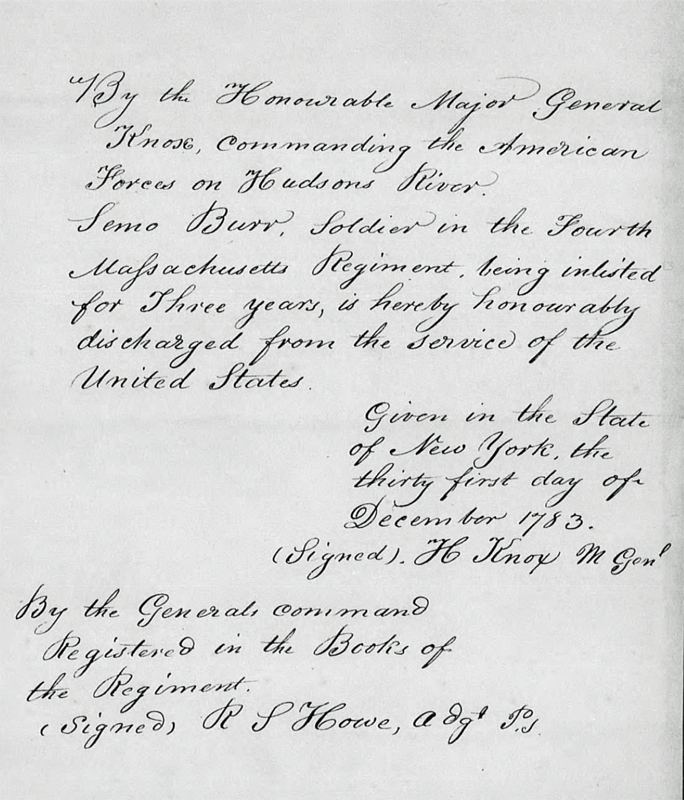 "By the Honourable Major General
Knox, commanding the American
Forces on Hudsons River.
Semo Burr, Soldier in the Fourth
Maſsachusetts Regiment, being inlisted
for Three years, is hereby honourably
discharged from the service of the
United States.
Given in the State
of New York, the
thirty first day of
December 1783.
(Signed). H Knox M Genl
By the Generals command
Registered in the Books of
the Regiment.
(Signed) R S Howe, adgt